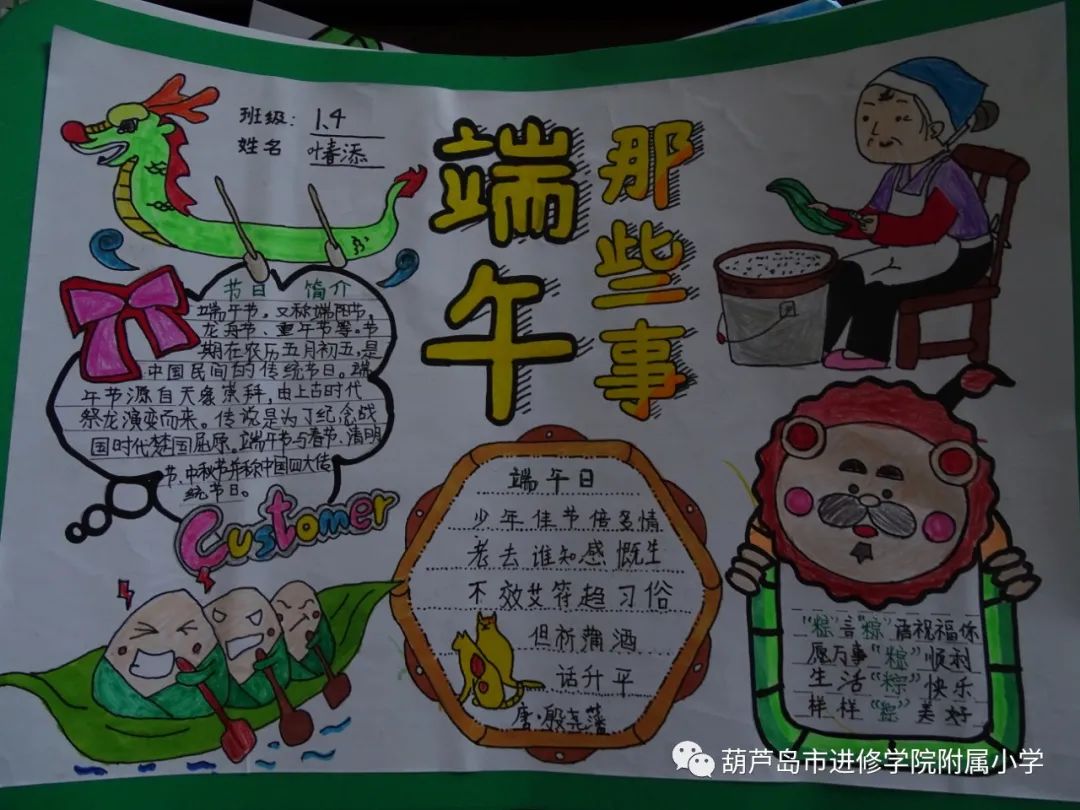 班级: 1.4
姓名 叶春添
端午
那些事
节日 简介
端午节。又称端阳节,
龙舟节、重午节等。节
期在农历五月初五,是
中国民间的传统节日。端
午节源自天象崇拜,由上古时代
祭龙演变而来。传说是为了纪念战
国时代楚国屈原。端午节与春节、清明
节、中秋节并称中国四大传
统节日。
Customer
端午日
少年佳节倍多情
老去谁知感慨生
不效艾符趋习俗
但祈蒲酒
话升平
唐·殷尧藩
"粽"言"粽"语祝福你
愿万事"粽"顺利
生活"粽"快乐
样样"粽"美好
葫芦岛市进修学院附属小学